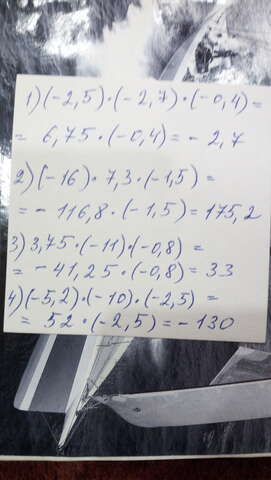 1) (-2,5)·(-2,7)·(-0,4)=
= 6,75·(-0,4)= - 2,7
2) (-16)·7,3·(-1,5)=
= - 116,8·(-1,5)=175,2
3) 3,75·(-11)·(-0,8)=
= -41,25·(-0,8)=33
4) (-5,2)·(-10)·(-2,5)=
= 52·(-2,5)= -130